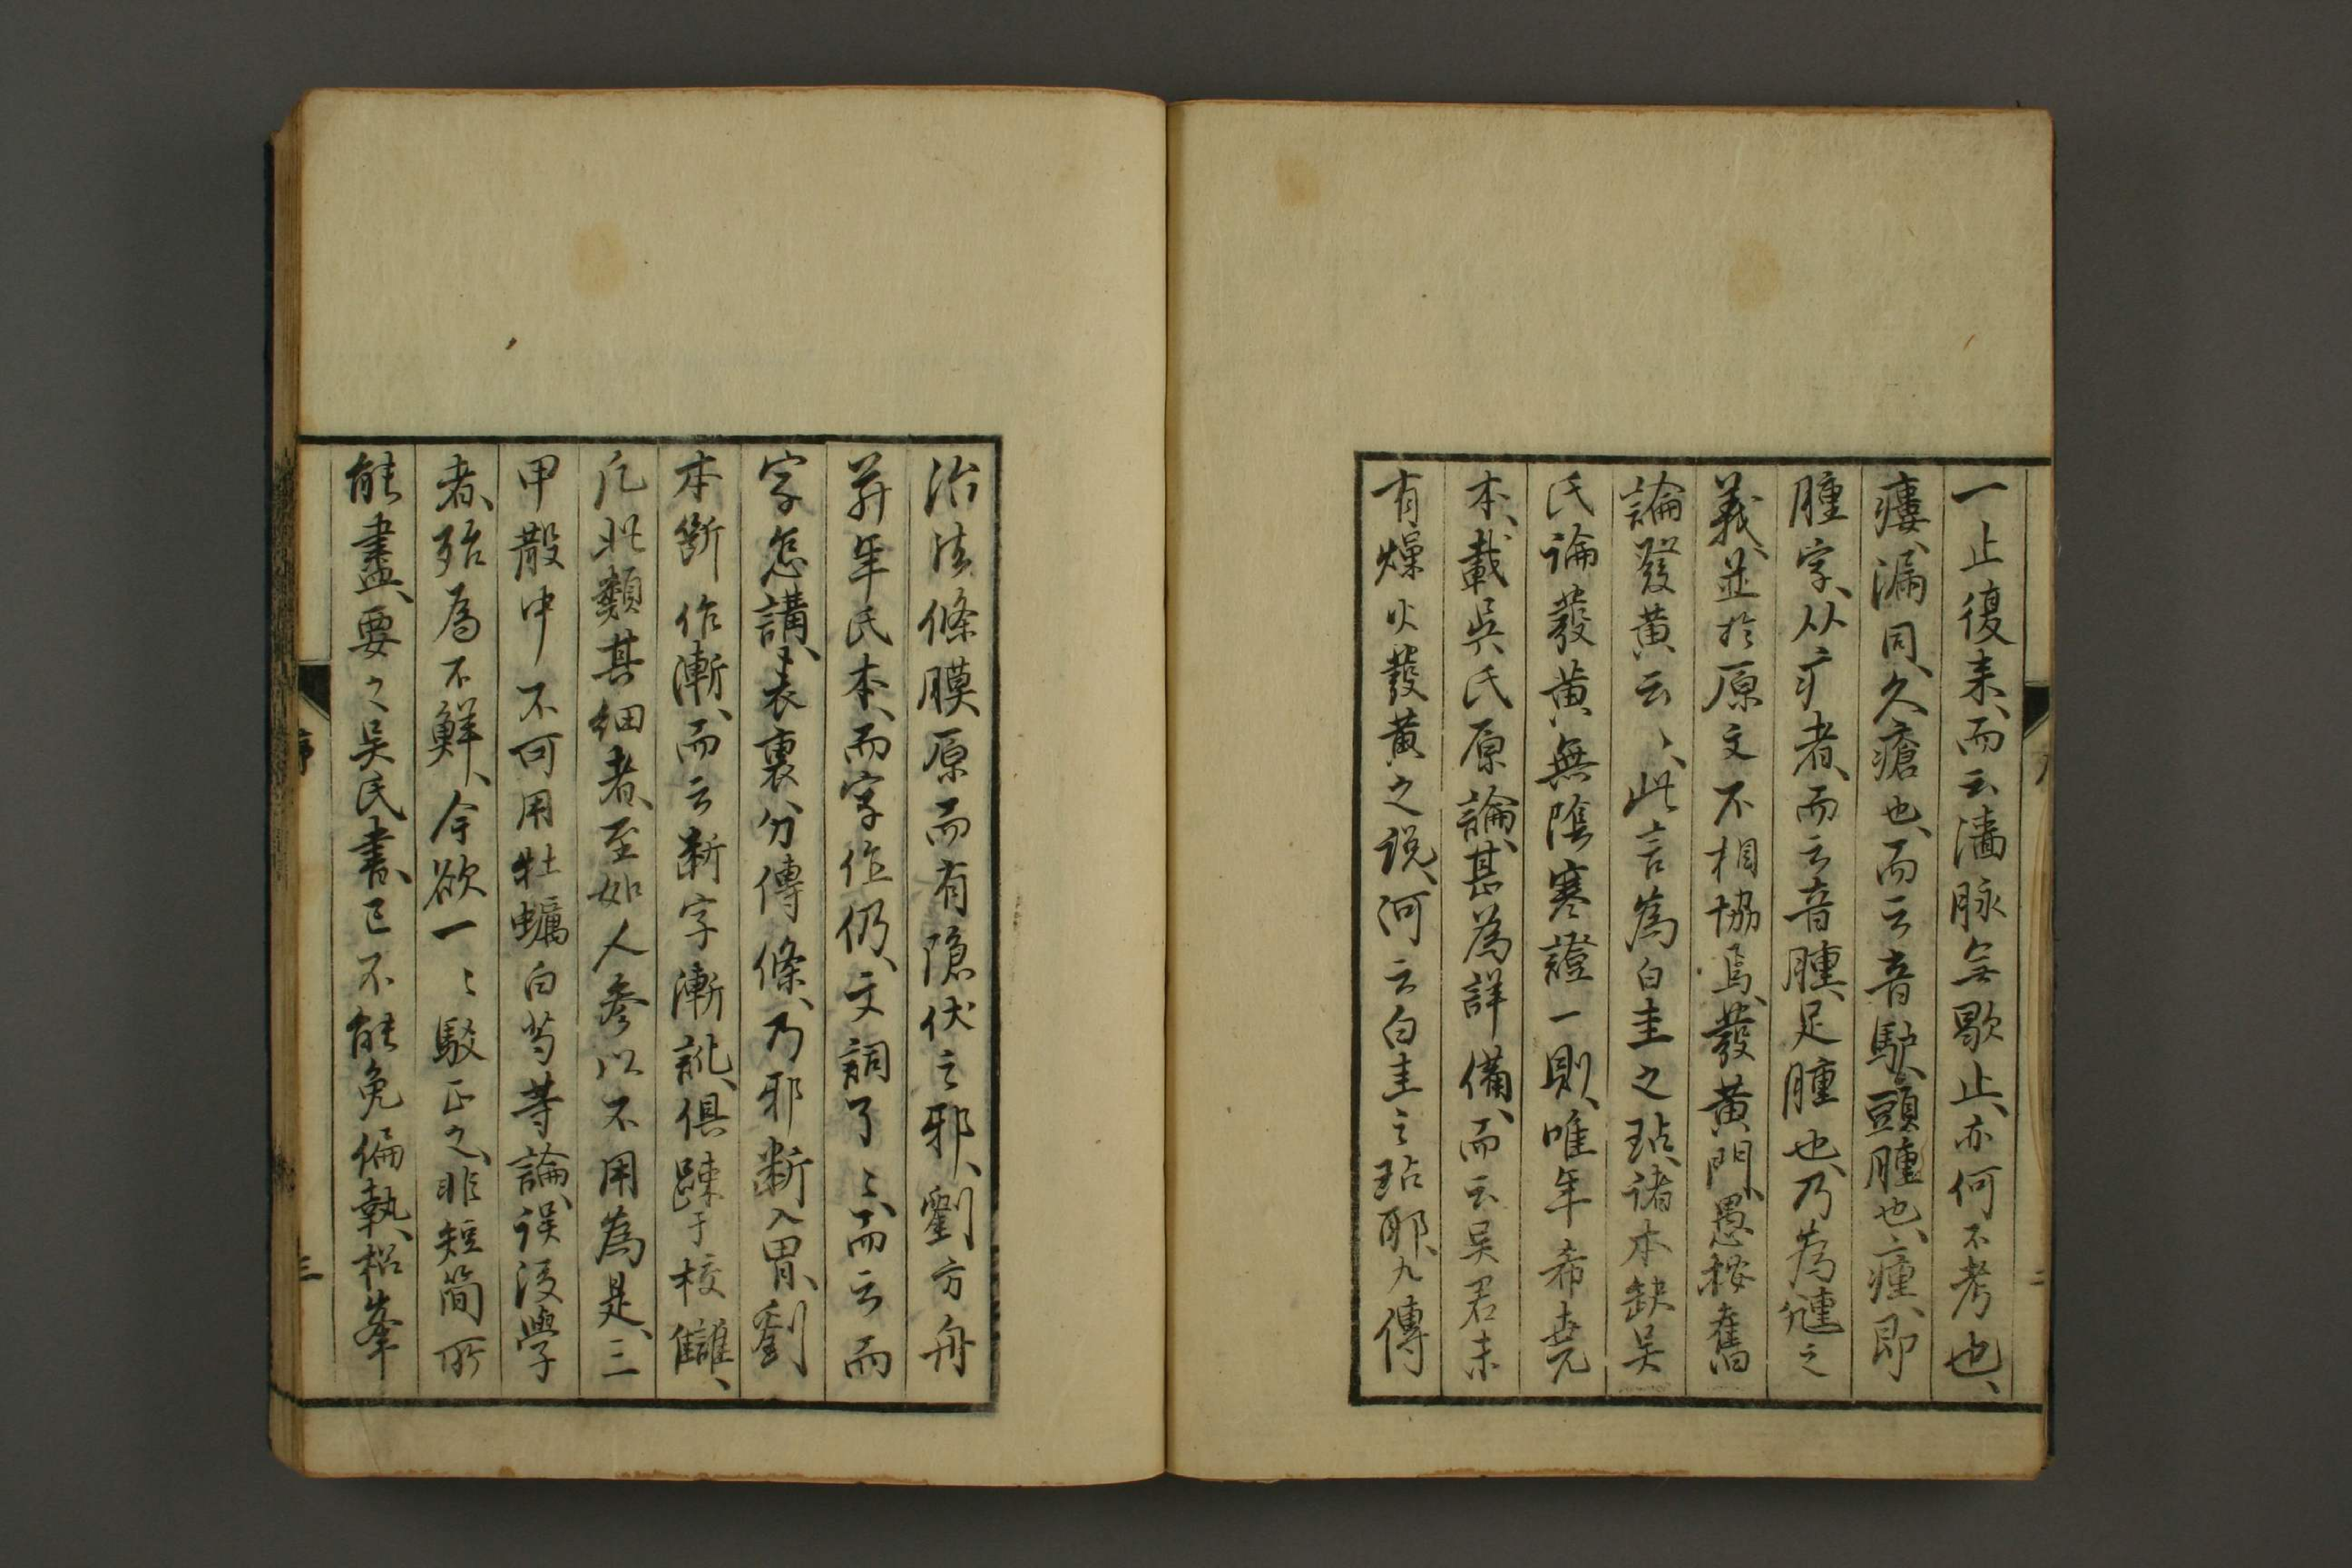 一止復来、而云濇脉無歇止、亦何不考也、
瘻、漏同、久瘡也、而云音馿、頭腫也、瘇、即
腫字、从疒者、而云音腫、足腫也、乃為尰之
義、並於原文不相協焉、發黄門、愚桉舊
論發黄云〻、此言為白圭之玷、諸本缺吴
氏論發黄、無陰寒證一則、唯年希尭
本、載吴氏原論、甚為詳備、而云吴君未
有燥火發黄之説、何云白圭之玷耶、九傳
治法條膜原而有隐伏之邪、劉方舟
并年氏本、而字作仍、文詞了〻、而云而
字怎講、表裏分傳條、乃邪断入胃、劉
本断作漸、而云断字漸訛、俱踈于校讎、
凡此類其細者、至如人参以不用為是、三
甲散中不可用牡蠣白芍等論、误後學
者、殆為不鮮、今欲一〻駁正之、非短簡所
能盡、要之吴氏書、已不能免偏執、松峯
序
三